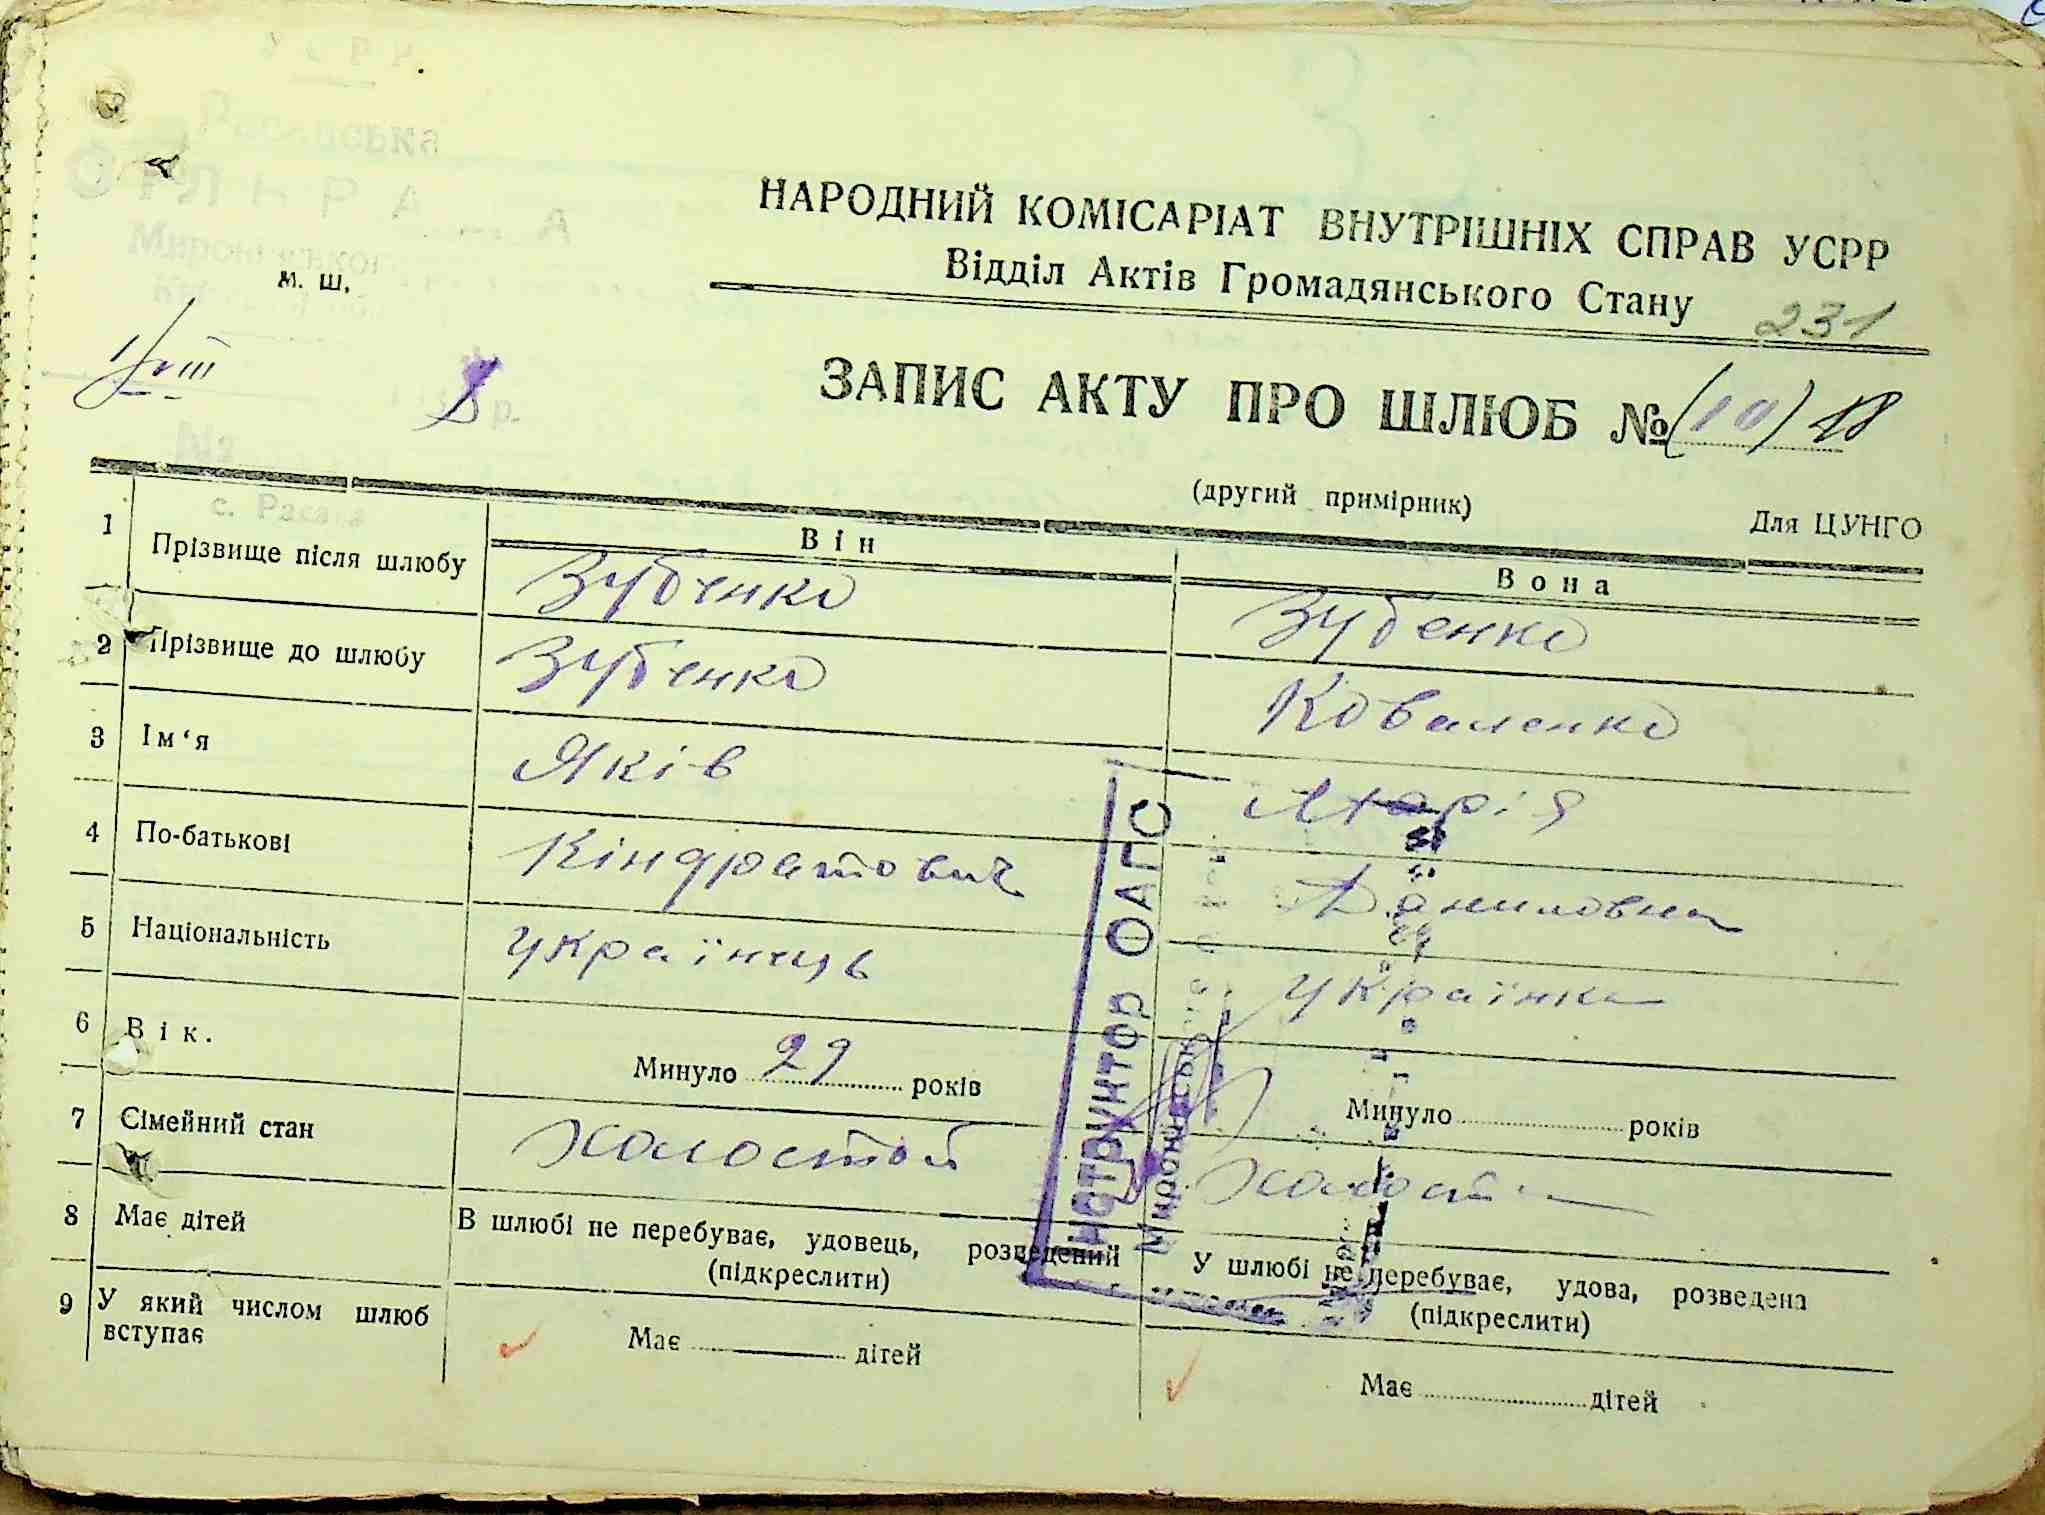 УСРР
М. Ш.
НАРОДНИЙ КОМІСАРІАТ ВНУТРІШНІХ СПРАВ УСРР
Відділ Актів Громадянського Стану
231
ЗАПИС АКТУ ПРО ШЛЮБ № (10) 18
(другий примірник)
Для ЦУНГО
с. Расава
Він
Вона
1 Прізвище після шлюбу Зубенко Зубенко
2 Прізвище до шлюбу Зубенко Коваленко
3 Ім‘я Яків Марія
4 По-батькові Кіндратович Даниловна
5 Національність українець Українка
6 Вік. Минуло 29 років Минуло років
7 Сімейний стан Холостой Холоста
В шлюбі не перебуває, удовець, розведений У шлюбі не перебуває, удова, розведена
(підкреслити) (підкреслити)
8 Має дітей Має дітей Має дітей
9 У який числом шлюб
вступає
ІНСТРУКТОР ОАГС